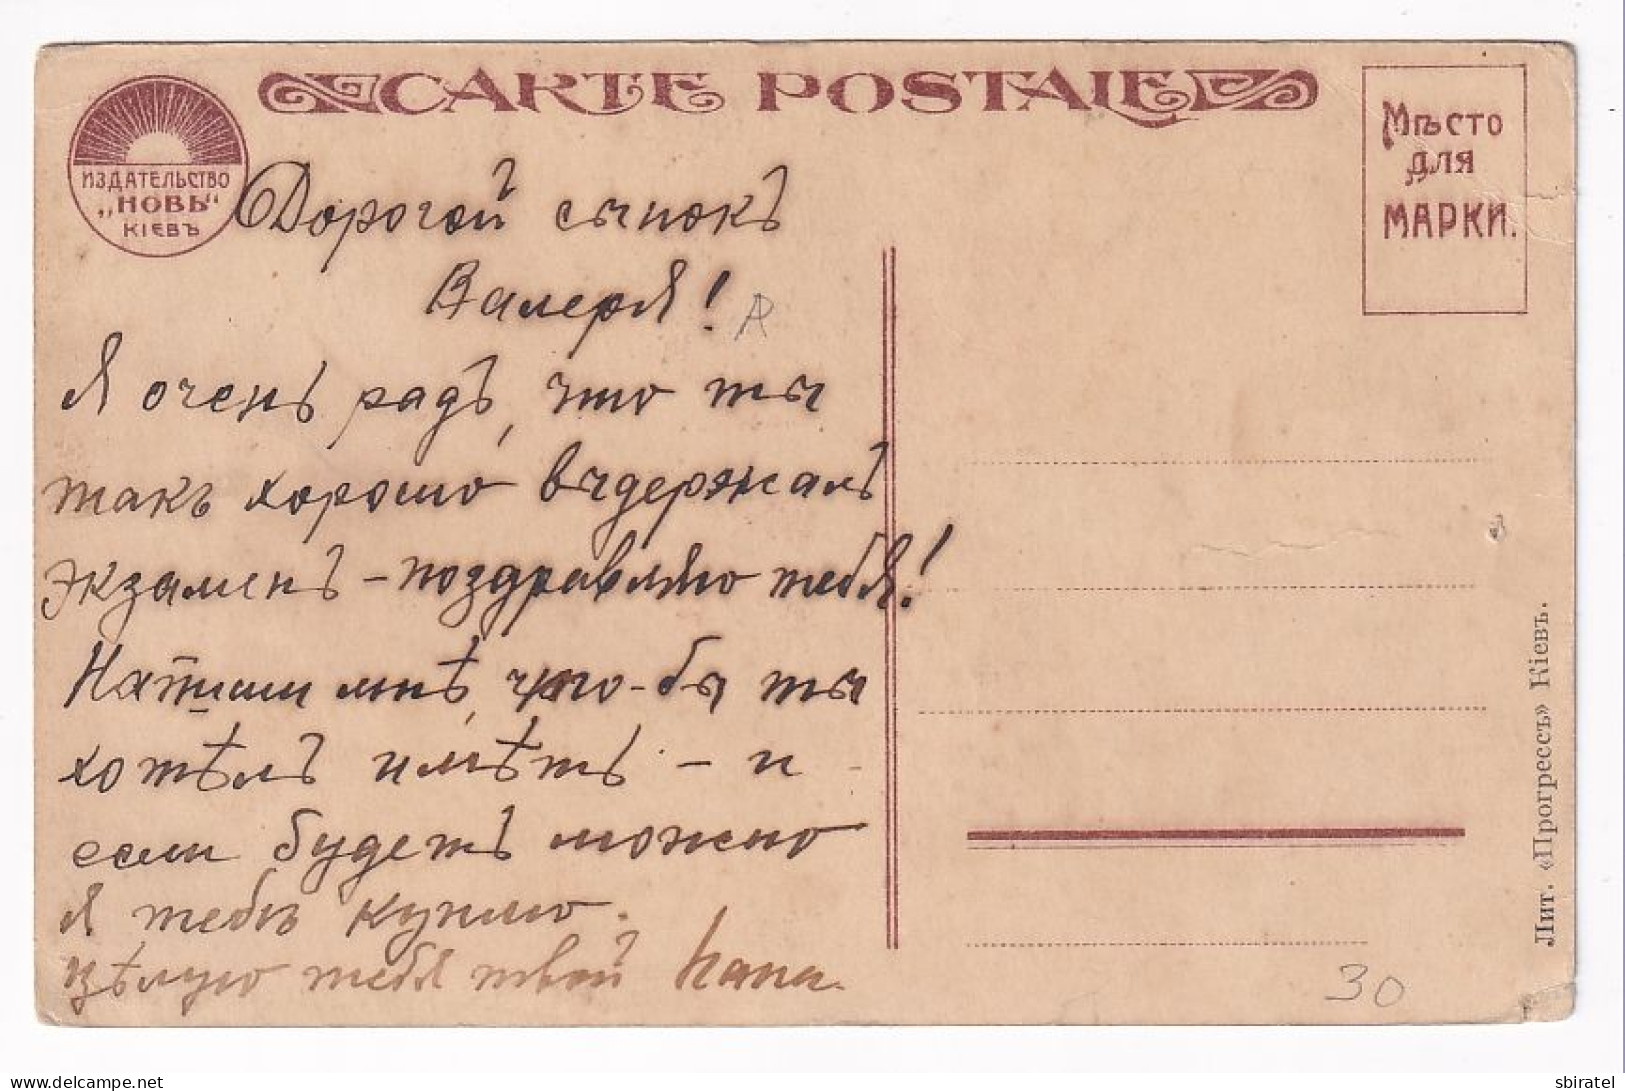 CARTE POSTALE
ИЗДАТЕЛЬСТВО
„НОВЬ“
КІЕВЪ
Мѣсто
для
МАРКИ.
Дорогой сынокъ
Валеря!
Я очень радъ, что ты
такъ хорошо выдержалъ
экзаменъ – поздравляю тебя!
Напиши мнѣ, что-бы ты
хотѣлъ имѣть – и
если будетъ можно
я тебѣ куплю.
Цѣлую тебя твой папа.
Лит. «Прогрессъ» Кіевъ.
30
www.delcampe.net
sbiratel